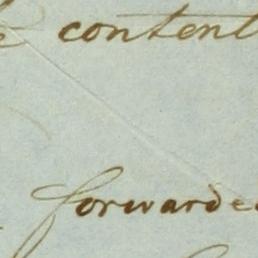 content
forwarded